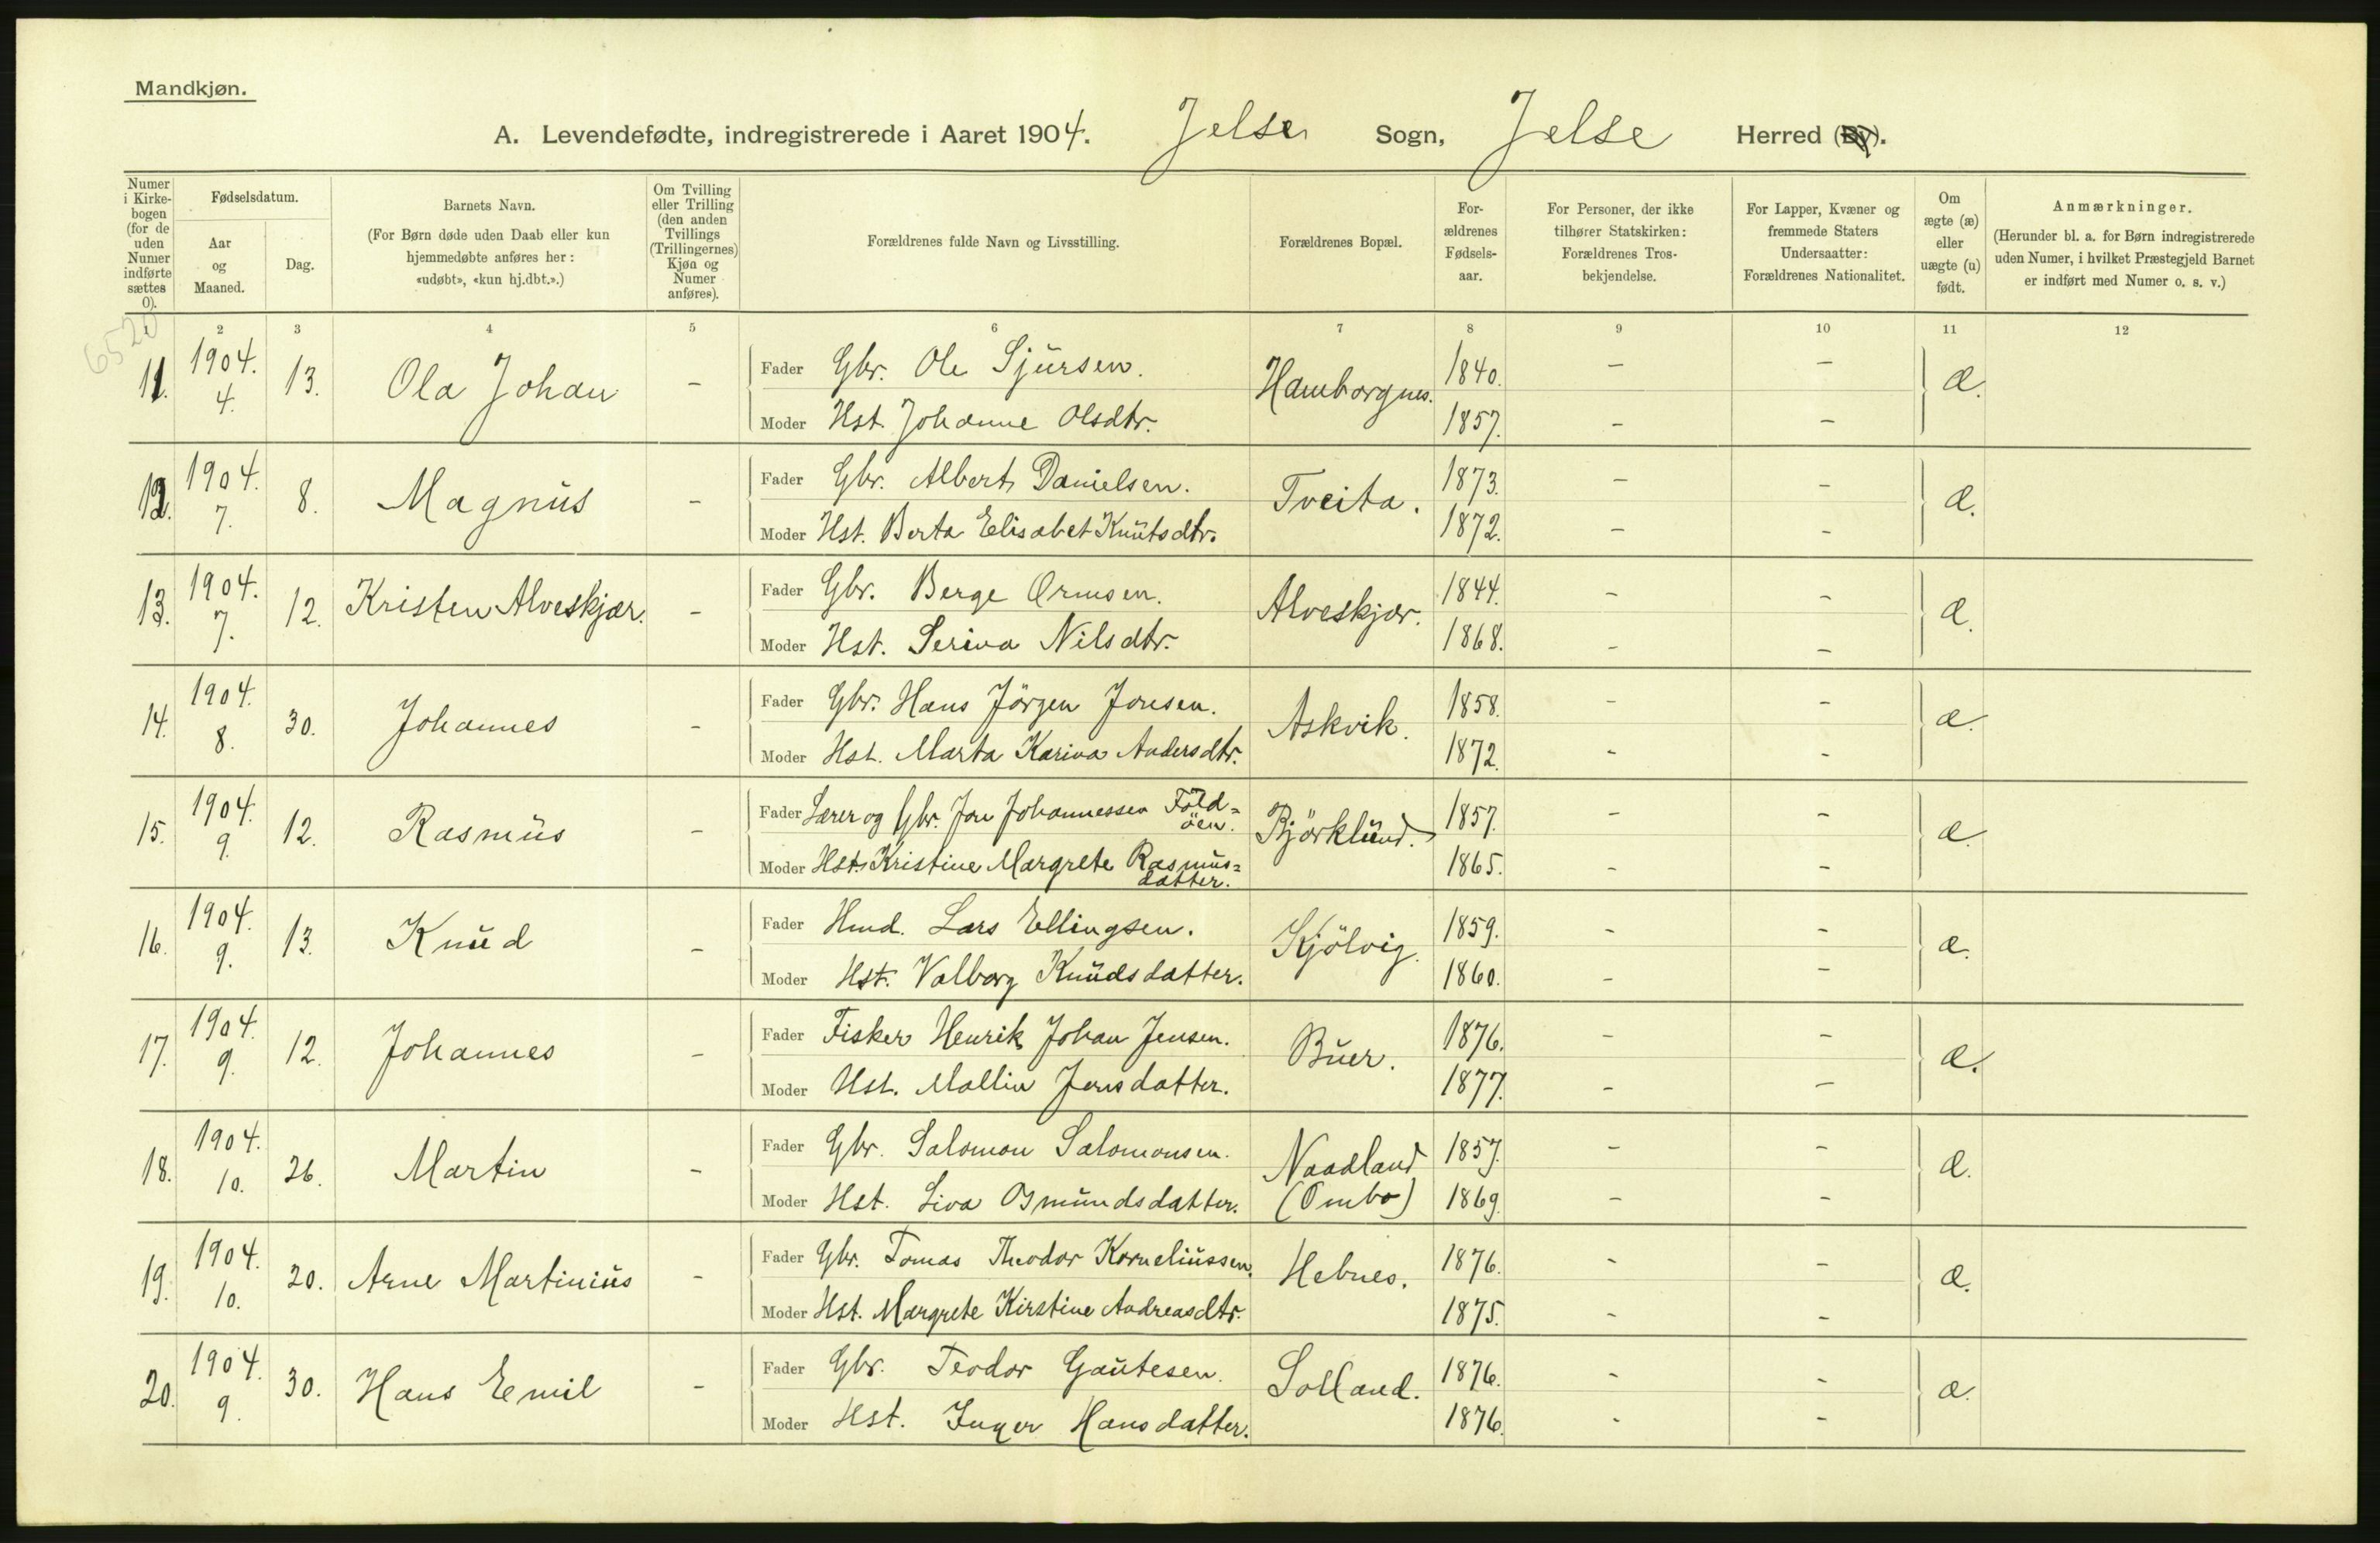 Mandkjøn.
A. Levendefødte, indregistrerede i Aaret 1904. Jelse Sogn, Jelse Herred (By).
Numer i Kirkebogen (for de uden Numer indførte sættes 0).
Fødselsdatum.
Aar og Maaned.
Dag.
Barnets Navn.
(For Børn døde uden Daab eller kun hjemmedøbte anføres her: «udøbt», «kun hj.dbt.».)
Om Tvilling eller Trilling (den anden Tvillings (Trillingernes) Kjøn og Numer anføres).
Forældrenes fulde Navn og Livsstilling.
Forældrenes Bopæl.
Forældrenes Fødselsaar.
For Personer, der ikke tilhører Statskirken: Forældrenes Trosbekjendelse.
For Lapper, Kvæner og fremmede Staters Undersaatter: Forældrenes Nationalitet.
Om ægte (æ) eller uægte (u) født.
Anmærkninger.
(Herunder bl. a. for Børn indregistrerede uden Numer, i hvilket Præstegjeld Barnet er indført med Numer o. s. v.)
6520
1 2 3 4 5 6 7 8 9 10 11 12
11. 1904. 4. 13. Ola Johan - Fader Gbr. Ole Sjursen. Hamborgnes. 1840. - - æ.
Moder Hst. Johanne Olsdtr. 1857. - -
12. 1904. 7. 8. Magnus - Fader Gbr. Albert Danielsen. Tveita. 1873. - - æ.
Moder Hst. Berta Elisabet Knutsdtr. 1872. - -
13. 1904. 7. 12. Kristen Alveskjær. - Fader Gbr. Berge Ormsen. Alveskjær. 1844. - - æ.
Moder Hst. Serina Nilsdtr. 1868. - -
14. 1904. 8. 30. Johannes - Fader Gbr. Hans Jörgen Jonsen. Askvik. 1858. - - æ.
Moder Hst. Marta Karina Andersdtr. 1872. - -
15. 1904. 9. 12. Rasmus - Fader Lærer og Gbr. Jon Johannessen Föld=
öen. Björklund. 1857. - - æ.
Moder Hst. Kristine Margrete Rasmus=
datter. 1865. - -
16. 1904. 9. 13. Knud - Fader Hmd. Lars Ellingsen. Kjölvig. 1859. - - æ.
Moder Hst. Valborg Knudsdatter. 1860. - -
17. 1904. 9. 12. Johannes - Fader Fisker Henrik Johan Jensen. Buer. 1876. - - æ.
Moder Hst. Mallin Jonsdatter. 1877. - -
18. 1904. 10. 26. Martin - Fader Gbr. Salomon Salomonsen. Naadland 1857. - - æ.
Moder Hst. Siva Osmundsdatter. (Ombo) 1869. - -
19. 1904. 10. 20. Arne Martinius - Fader Gbr. Tomas Theodor Korneliussen. Hebnes. 1876. - - æ.
Moder Hst. Margrete Kirstine Andreasdtr. 1875. - -
20. 1904. 9. 30. Hans Emil - Fader Gbr. Teodor Gautesen. Solland. 1876. - - æ.
Moder Hst. Inger Hansdatter. 1876. - -